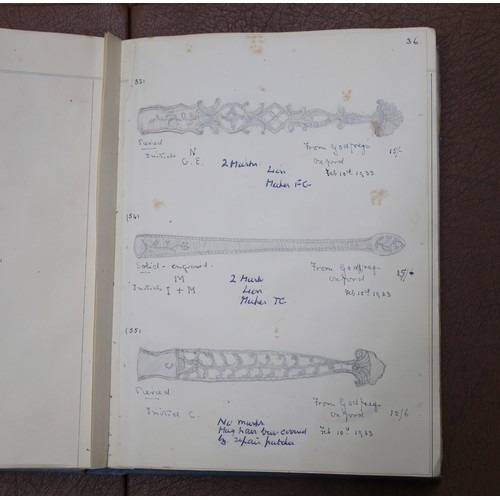 36.
(53)
Pierced
Initials N
G. E.
2 Marks
Lion
Maker FG
From Godfreys
Oxford
Feb 10th 1933
15/-
(54)
Solid - engraved.
Initials M
I + M
2 Marks
Lion
Maker TC
From Godfreys
Oxford
Feb 10th 1933
25/-
(55)
Pierced
Initial C.
C
No marks
May have been covered
by repair patches
From Godfreys
Oxford
Feb 10th 1933
12/6